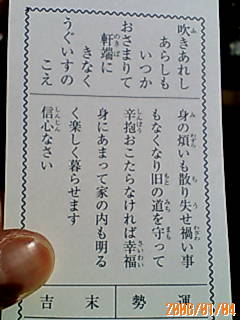 吹きあれし
あらしも
いつか
おさまりて
軒端に
きなく
うぐいすの
こえ
身の煩いも散り失せ禍い事
もなくなり旧の道を守って
辛抱おこたらなければ幸福
身にあまって家の内も明る
く楽しく暮らせます
信心なさい
運勢末吉
2008/01/04